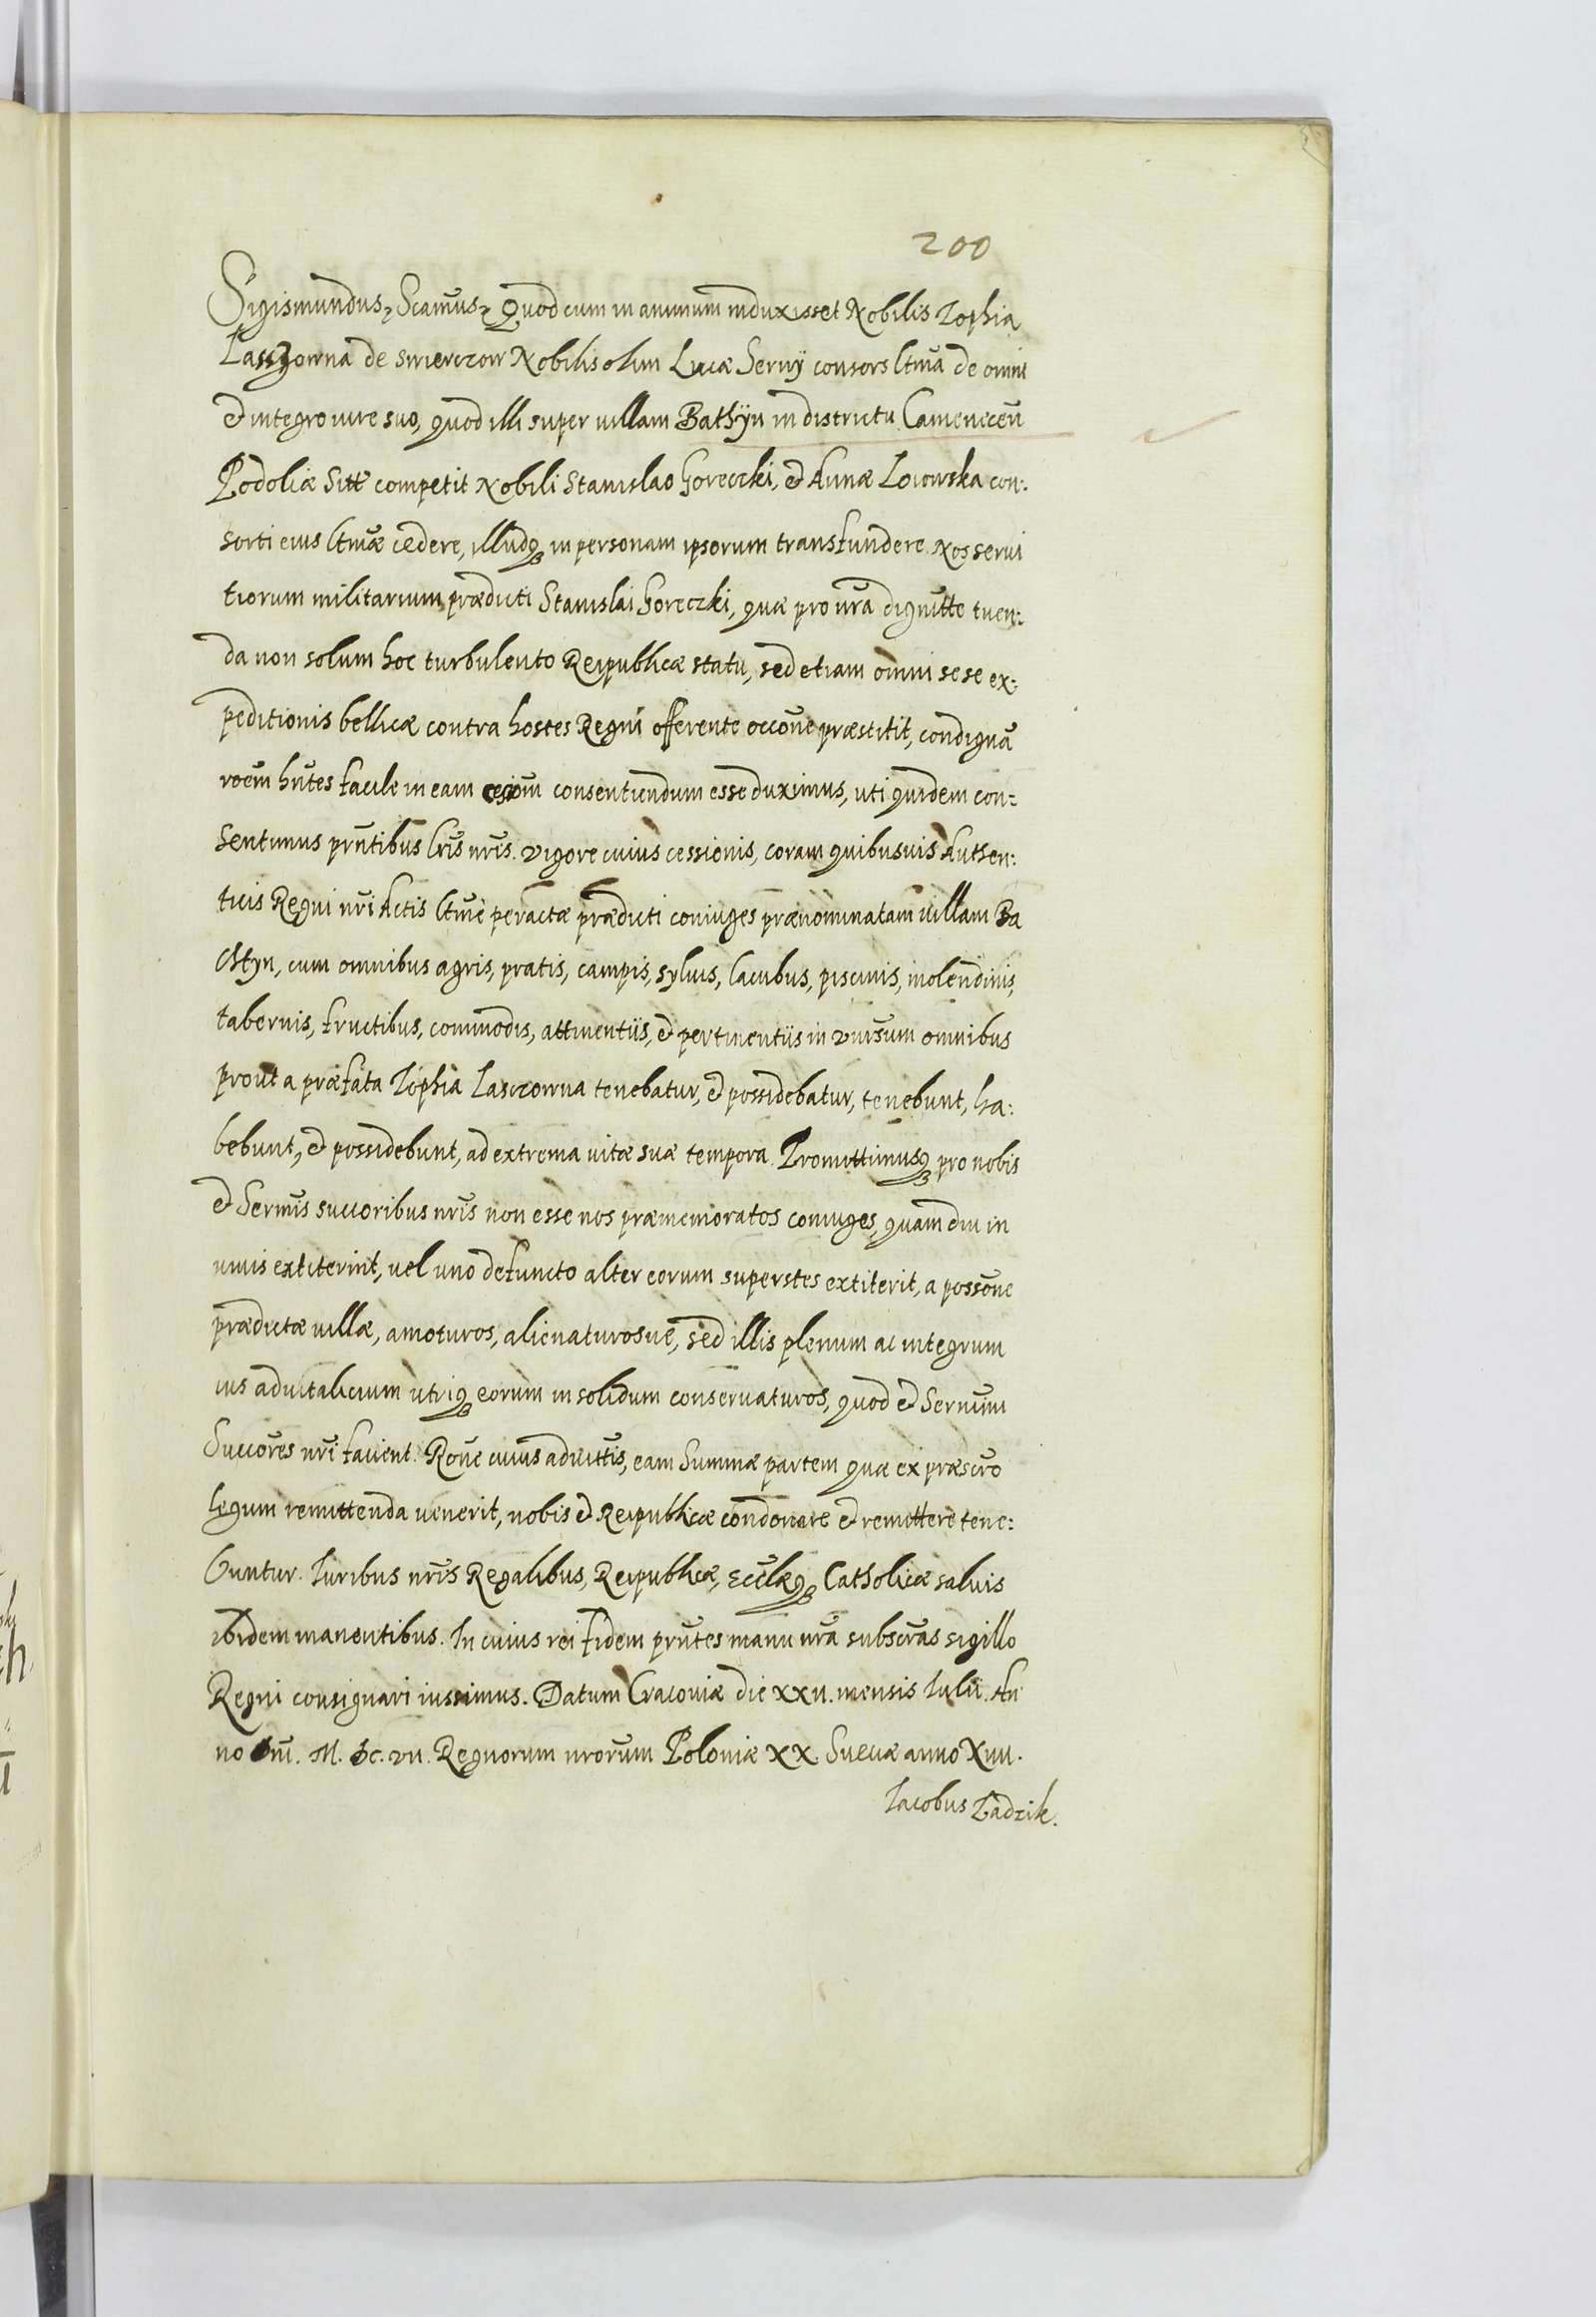 200
Sigismundus, Scamus, Quod cum in animum induxisset Nobilis Zophia
Lasczowna de Swierczow Nobilis olim Lucæ Serny consors ltma de omni
& integro iure suo, quod illi super villam Bathÿn in districtu Camenecen̄
Podoliæ sitt̄ competit Nobili Stanislao Goreczki, & Annæ Loiowska con:
sorti eius ltmæ cedere, illudq; in personam ipsorum transfundere. Nos servi
tiorum militarium prædicti Stanislai Goreczki, quæ pro nr̄a dignitt̄e tuen:
da non solum hoc turbulento Reipublicæ statu, sed etiam omni sese ex:
peditionis bellicæ contra hostes Regni offerente occōne præstitit, condignā
roēm hn̄tes facile in eam cesiom̄ consentiendum esse duximus, uti quidem con:
sentimus prn̄tibus lr̄is nr̄is. Vigore cuius cessionis, coram quibusuis Authen:
ticis Regni nr̄i Actis ltm̄e peractæ prædicti coniuges prænominatam villam Ba
thyn, cum omnibus agris, pratis, campis, syluis, lacubus, piscinis, molendinis,
tabernis, fructibus, commodis, attinentiis, & pertinentiis in vnir̄sum omnibus
prout a præfata Zophia Lasczowna tenebatur, & possidebatur, tenebunt, ha:
bebunt, & possidebunt, ad extrema vitæ suæ tempora. Promittimusq; pro nobis
& Sermis succoribus nr̄is non esse nos præmemoratos coniuges, quam diu in
uiuis extiterint, vel uno defuncto alter eorum superstes extiterit, a possōne
prædictæ villæ, amoturos, alienaturosue, sed illis plenum ac integrum
ius aduitalicium utriq; eorum in solidum conseruaturos, quod & Sermi
Succores nr̄i facient. Rōne cuius aduittis, eam Summæ partem quæ ex præscr̄o
legum remittenda venerit, nobis & Reipublicæ condonare & remittere tene:
buntur. Iuribus nr̄is Regalibus, Reipublicæ, Ecclæq; Catholicæ saluis
ibidem manentibus. In cuius rei fidem prn̄tes manu nr̄a subscr̄as sigillo
Regni consignari iussimus. Datum Cracoviæ die XXII. mensis Iulii. An
no Dn̄i. M. DC. VII. Regnorum nr̄orum Poloniæ XX. Sueciæ anno XIIII.
Iacobus Zadzik.